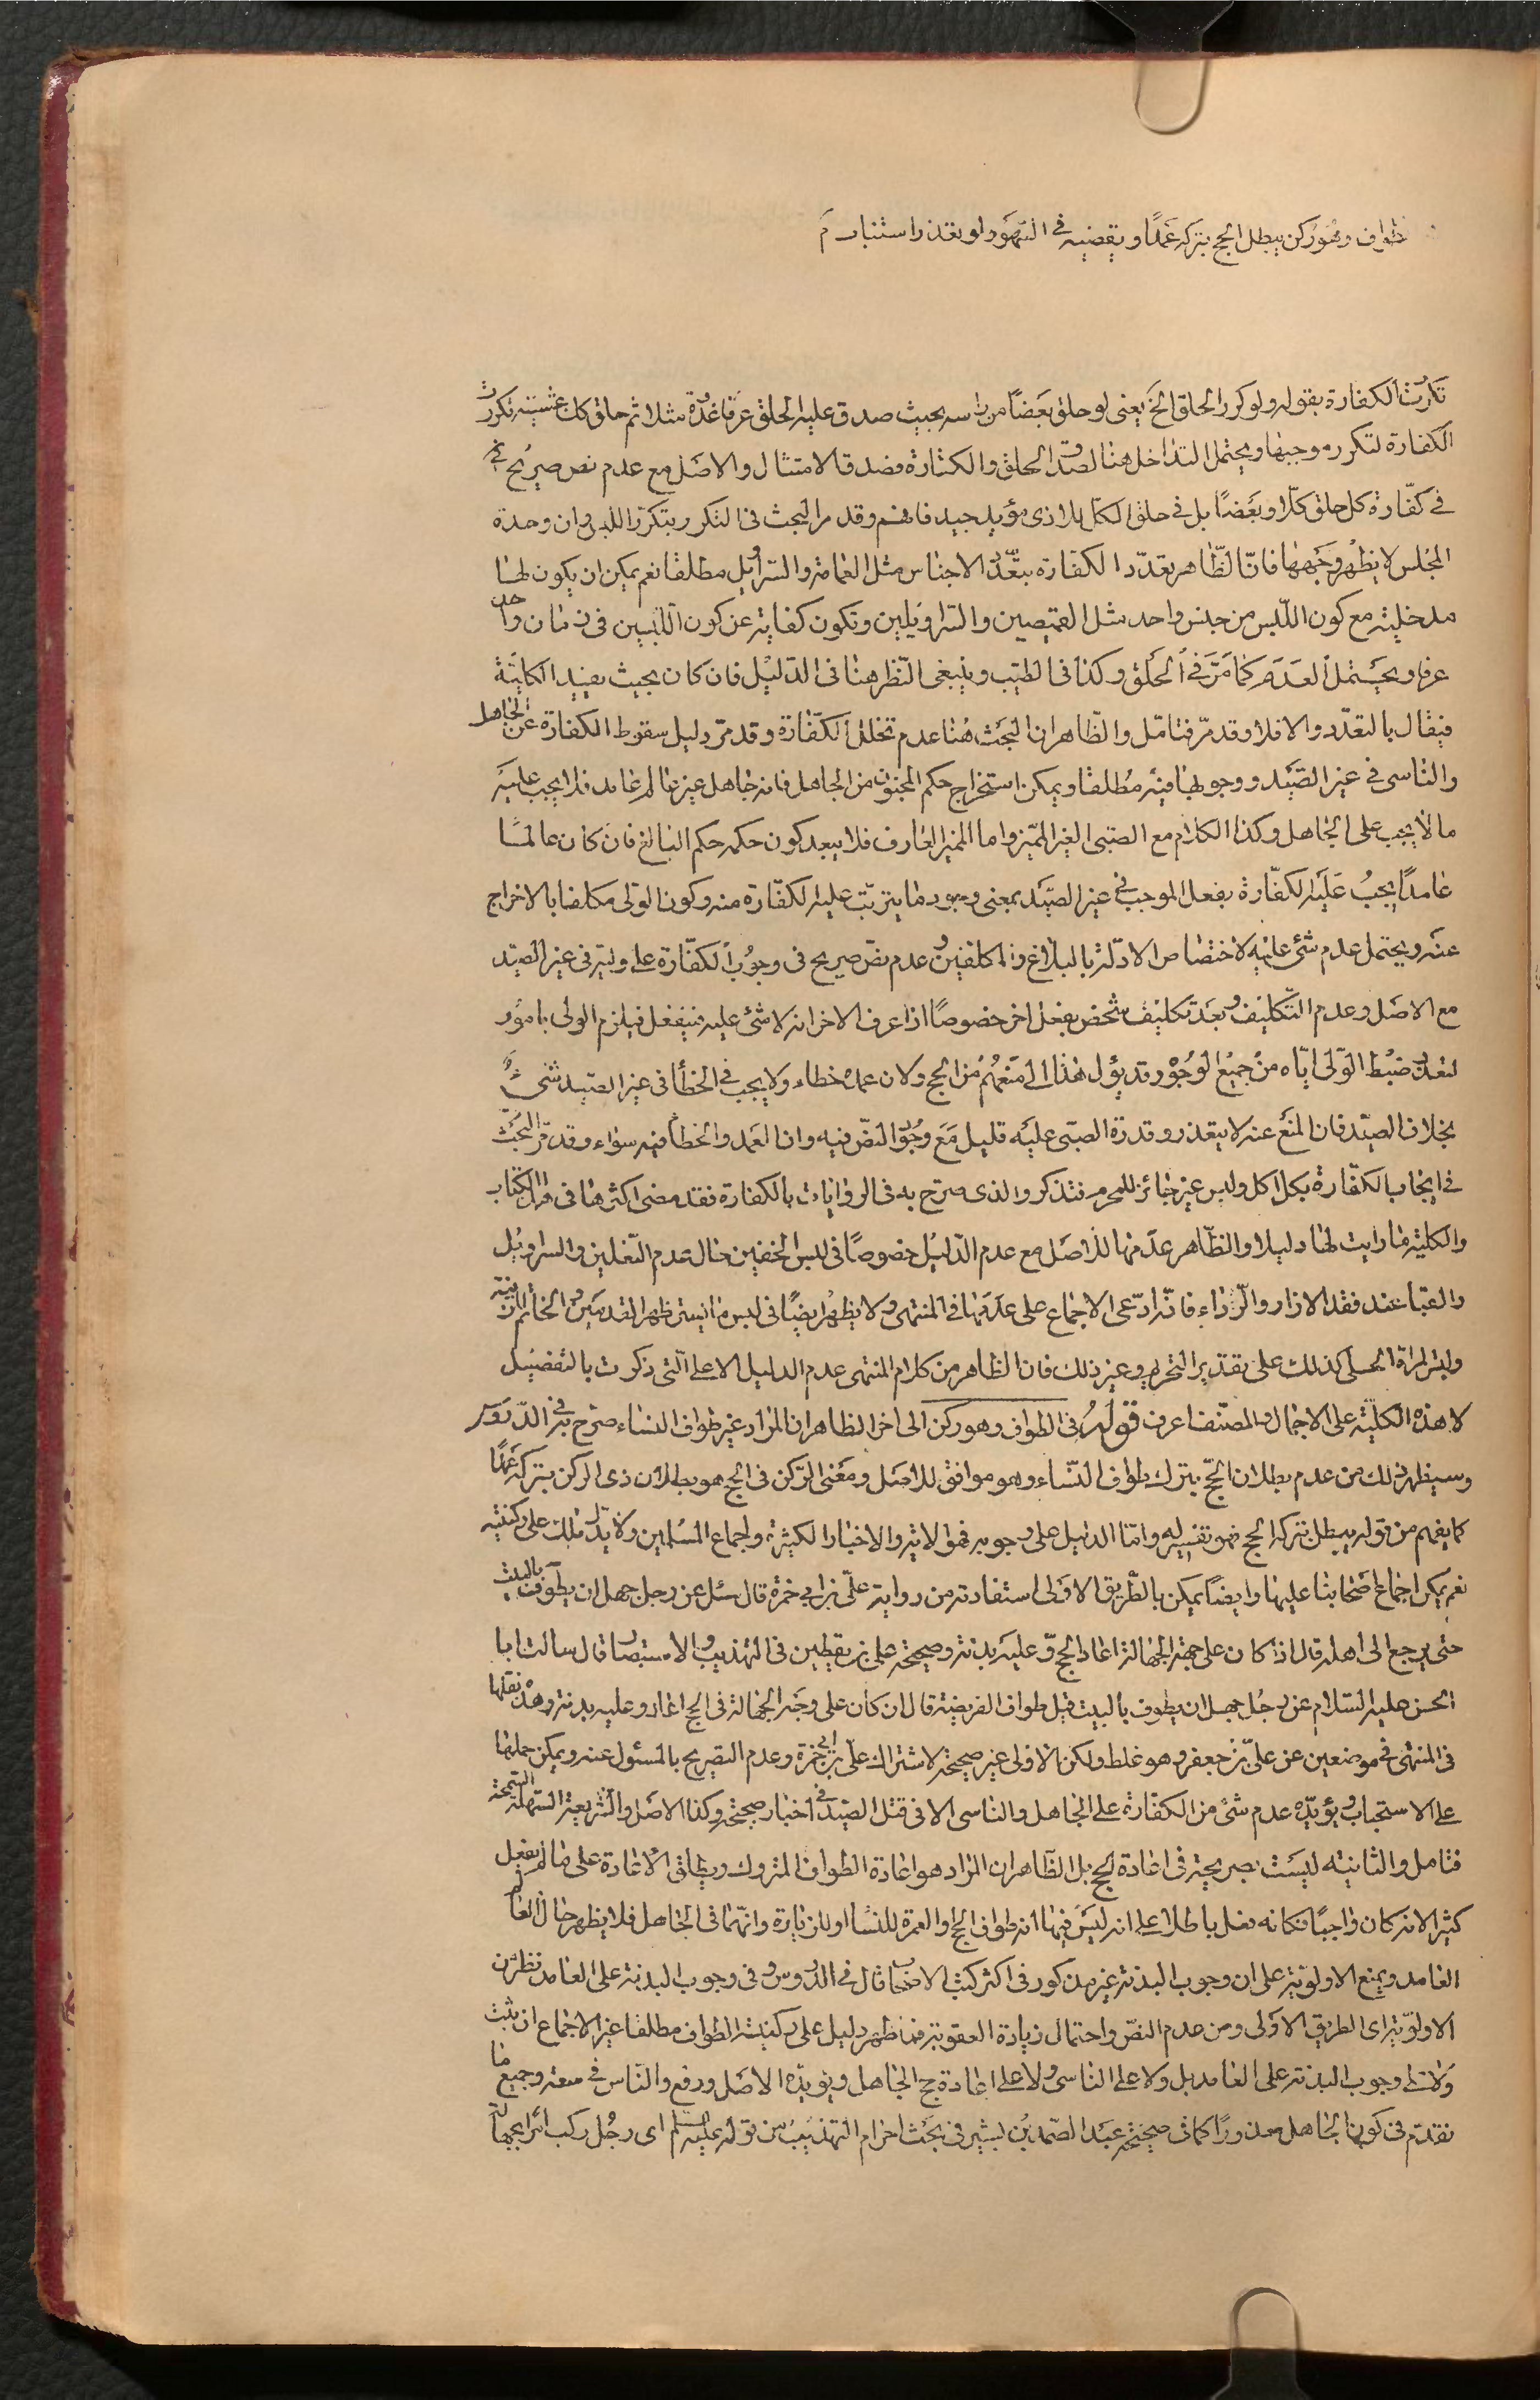 طواف وهو ركن يبطل الحج بتركه عمدا ويقضيه في السهو ولو تعذر استناب م
تكررت الكفارة بقوله ولو كرر الحلق الخ يعني لو حلق بعضا من راسه بحيث صدق عليه الحلق عرفا غدوة مثلا ثم حلق كل عشيته تكررت
الكفارة لتكرر موجبها ويحتمل التداخل هنا لصدق الحلق والكفارة وصدق الامتثال والاصل مع عدم نص صريح
في كفارة كل حلق كلا وبعضا بل في حلق الكل بلا اذى مؤيد جيد فافهم وقد مر البحث في التكرر بتكرر اللبس وان وحدة
المجلس لا يظهر وجهها فان الظاهر تعدد الكفارة بتعدد الاجناس مثل العمامة والسراويل مطلقا نعم يمكن ان يكون لها
مدخلية مع كون اللبس من جنس واحد مثل القميصين والسراويلين وتكون كفاية عن كون اللبسين في زمان واحد
عرفا ويحتمل العدم كما مر في الحلق وكذا في الطيب وينبغي النظر هنا في الدليل فان كان بحيث يفيد الكلية
فيقال بالتعدد والا فلا وقد مر فتامل والظاهر ان البحث هنا عدم تخلل الكفارة وقد مر دليل سقوط الكفارة عن الجاهل
والناسي في غير الصيد ووجوبها فيه مطلقا ويمكن استخراج حكم المجنون من الجاهل فانه جاهل غير عالم عامد فلا يجب عليه
ما لا يجب على الجاهل وكذا الكلام مع الصبي الغير المميز واما المميز العارف فلا يبعد كون حكمه حكم البالغ فان كان عالما
عامدا يجب عليه الكفارة بفعل الموجب في غير الصيد بمعنى وجود ما يترتب عليه الكفارة منه وكون الولي مكلفا بالاخراج
عنه ويحتمل عدم شئ عليه لاختصاص الادلة بالبلاغ والمكلفين وعدم نص صريح في وجوب الكفارة على وليه في غير الصيد
مع الاصل وعدم التكليف وبعد تكليف شخص بفعل اخر خصوصا اذا عرف الاخر انه لا شئ عليه فيفعل فيلزم الولي بامور
لتعذر ضبط الولي اياه من جميع الوجوه وقد يؤل هذا الى منعهم من الحج ولان عمده خطاء ولا يجب في الخطأ في غير الصيد شئ
بخلاف الصيد فان المنع عنه لا يتعذر وقدرة الصبي عليه قليل مع وجود النص فيه وان العمد والخطأ فيه سواء وقد مر البحث
في ايجاب الكفارة بكل اكل ولبس غير جائز للمحرم فتذكر والذي صرح به في الروايات بالكفارة فقد مضى اكثرها في هذا الكتاب
والكلية ما رايت لها دليلا والظاهر عدمها للاصل مع عدم الدليل خصوصا في لبس الخفين حال عدم النعلين والسراويل
والقبا عند فقد الازار والرداء فانه ادعى الاجماع على عدمها في المنتهى ولا يظهر ايضا في لبس ما يستر ظهر القدمين والخاتم للزينة
ولبس المراة الحلي كذلك على تقدير التحريم وغير ذلك فان الظاهر من كلام المنتهى عدم الدليل الا على التي ذكرت بالتفصيل
لا هذه الكلية على الاجمال والمصنف اعرف قوله في الطواف وهو ركن الى اخر الظاهر ان المراد غير طواف النساء صرح به في الدروس
وسيظهر ذلك من عدم بطلان الحج بترك طواف النساء وهو موافق للاصل ومعنى الركن في الحج هو بطلان ذي الركن بتركه عمدا
كما يفهم من قوله يبطل بتركه الحج فهو تفسير له واما الدليل على وجوبه فهو الاية والاخبار الكثيرة واجماع المسلمين ولا يدل ذلك على ركنيته
نعم يمكن اجماع اصحابنا عليها وايضا يمكن بالطريق الاولى استفادته من رواية علي بن ابي حمزة قال سئل عن رجل جهل ان يطوف بالبيت
حتى يرجع الى اهله قال اذا كان على جهة الجهالة اعاد الحج وعليه بدنة وصحيحة علي بن يقطين في التهذيب والاستبصار قال سالت ابا
الحسن عليه السلام عن رجل جهل ان يطوف بالبيت قبل طواف الفريضة قال ان كان على وجه الجهالة في الحج اعاد وعليه بدنة وهذه نقلها
في المنتهى في موضعين عن علي بن جعفر وهو غلط ولكن الاولى غير صحيحة لاشتراك علي بن ابي حمزة وعدم التصريح بالمسئول عنه ويمكن حملها
على الاستحباب ويؤيده عدم شئ من الكفارة على الجاهل والناسي الا في قتل الصيد في اخبار صحيحة وكذا الاصل والشريعة السهلة السمحة
فتامل والثانية ليست بصريحة في اعادة الحج بل الظاهر ان المراد هو اعادة الطواف المتروك ويطلق الاعادة على ما لم يفعل
كثيرا لانه كان واجبا فكانه فعل باطلا على انه ليس فيها انه طواف الحج او العمرة للنساء او للزيارة وانهما في الجاهل فلا يظهر حال العالم
العامد ويمنع الاولوية على ان وجوب البدنة غير مذكور في اكثر كتب الاصحاب قال في الدروس وفي وجوب البدنة على العامد نظر من
الاولوية اي الطريق الاولى ومن عدم النص واحتمال زيادة العقوبة فما ظهر دليل على ركنية الطواف مطلقا غير الاجماع ان ثبت
ولا على وجوب البدنة على العامد بل ولا على الناسي ولا على اعادة حج الجاهل ويؤيده الاصل ورفع والناس في سعة وجميع ما
تقدم في كون الجاهل معذورا كما في صحيحة عبد الصمد بن بشير في بحث احرام التهذيب من قوله عليه السلم اي رجل ركب امرا بجهالة